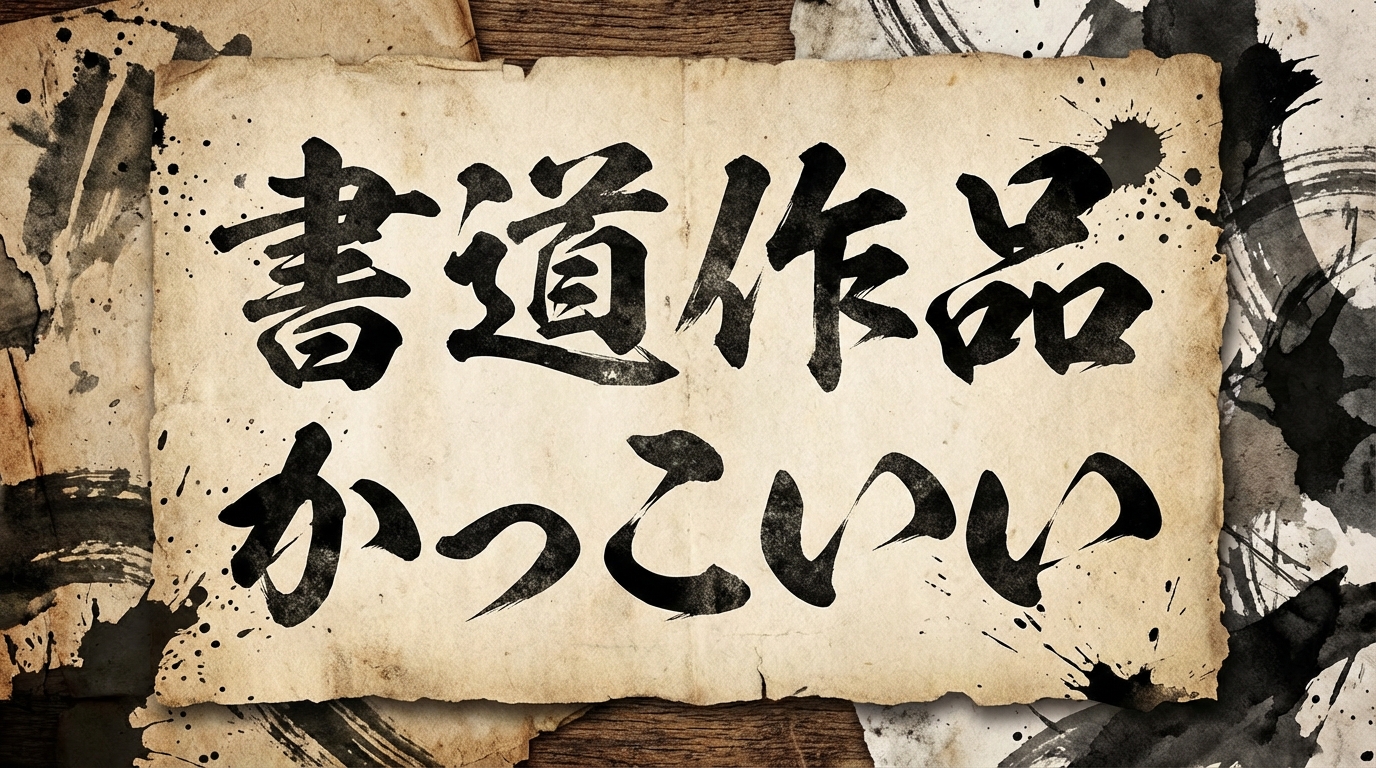 書道作品
かっこいい